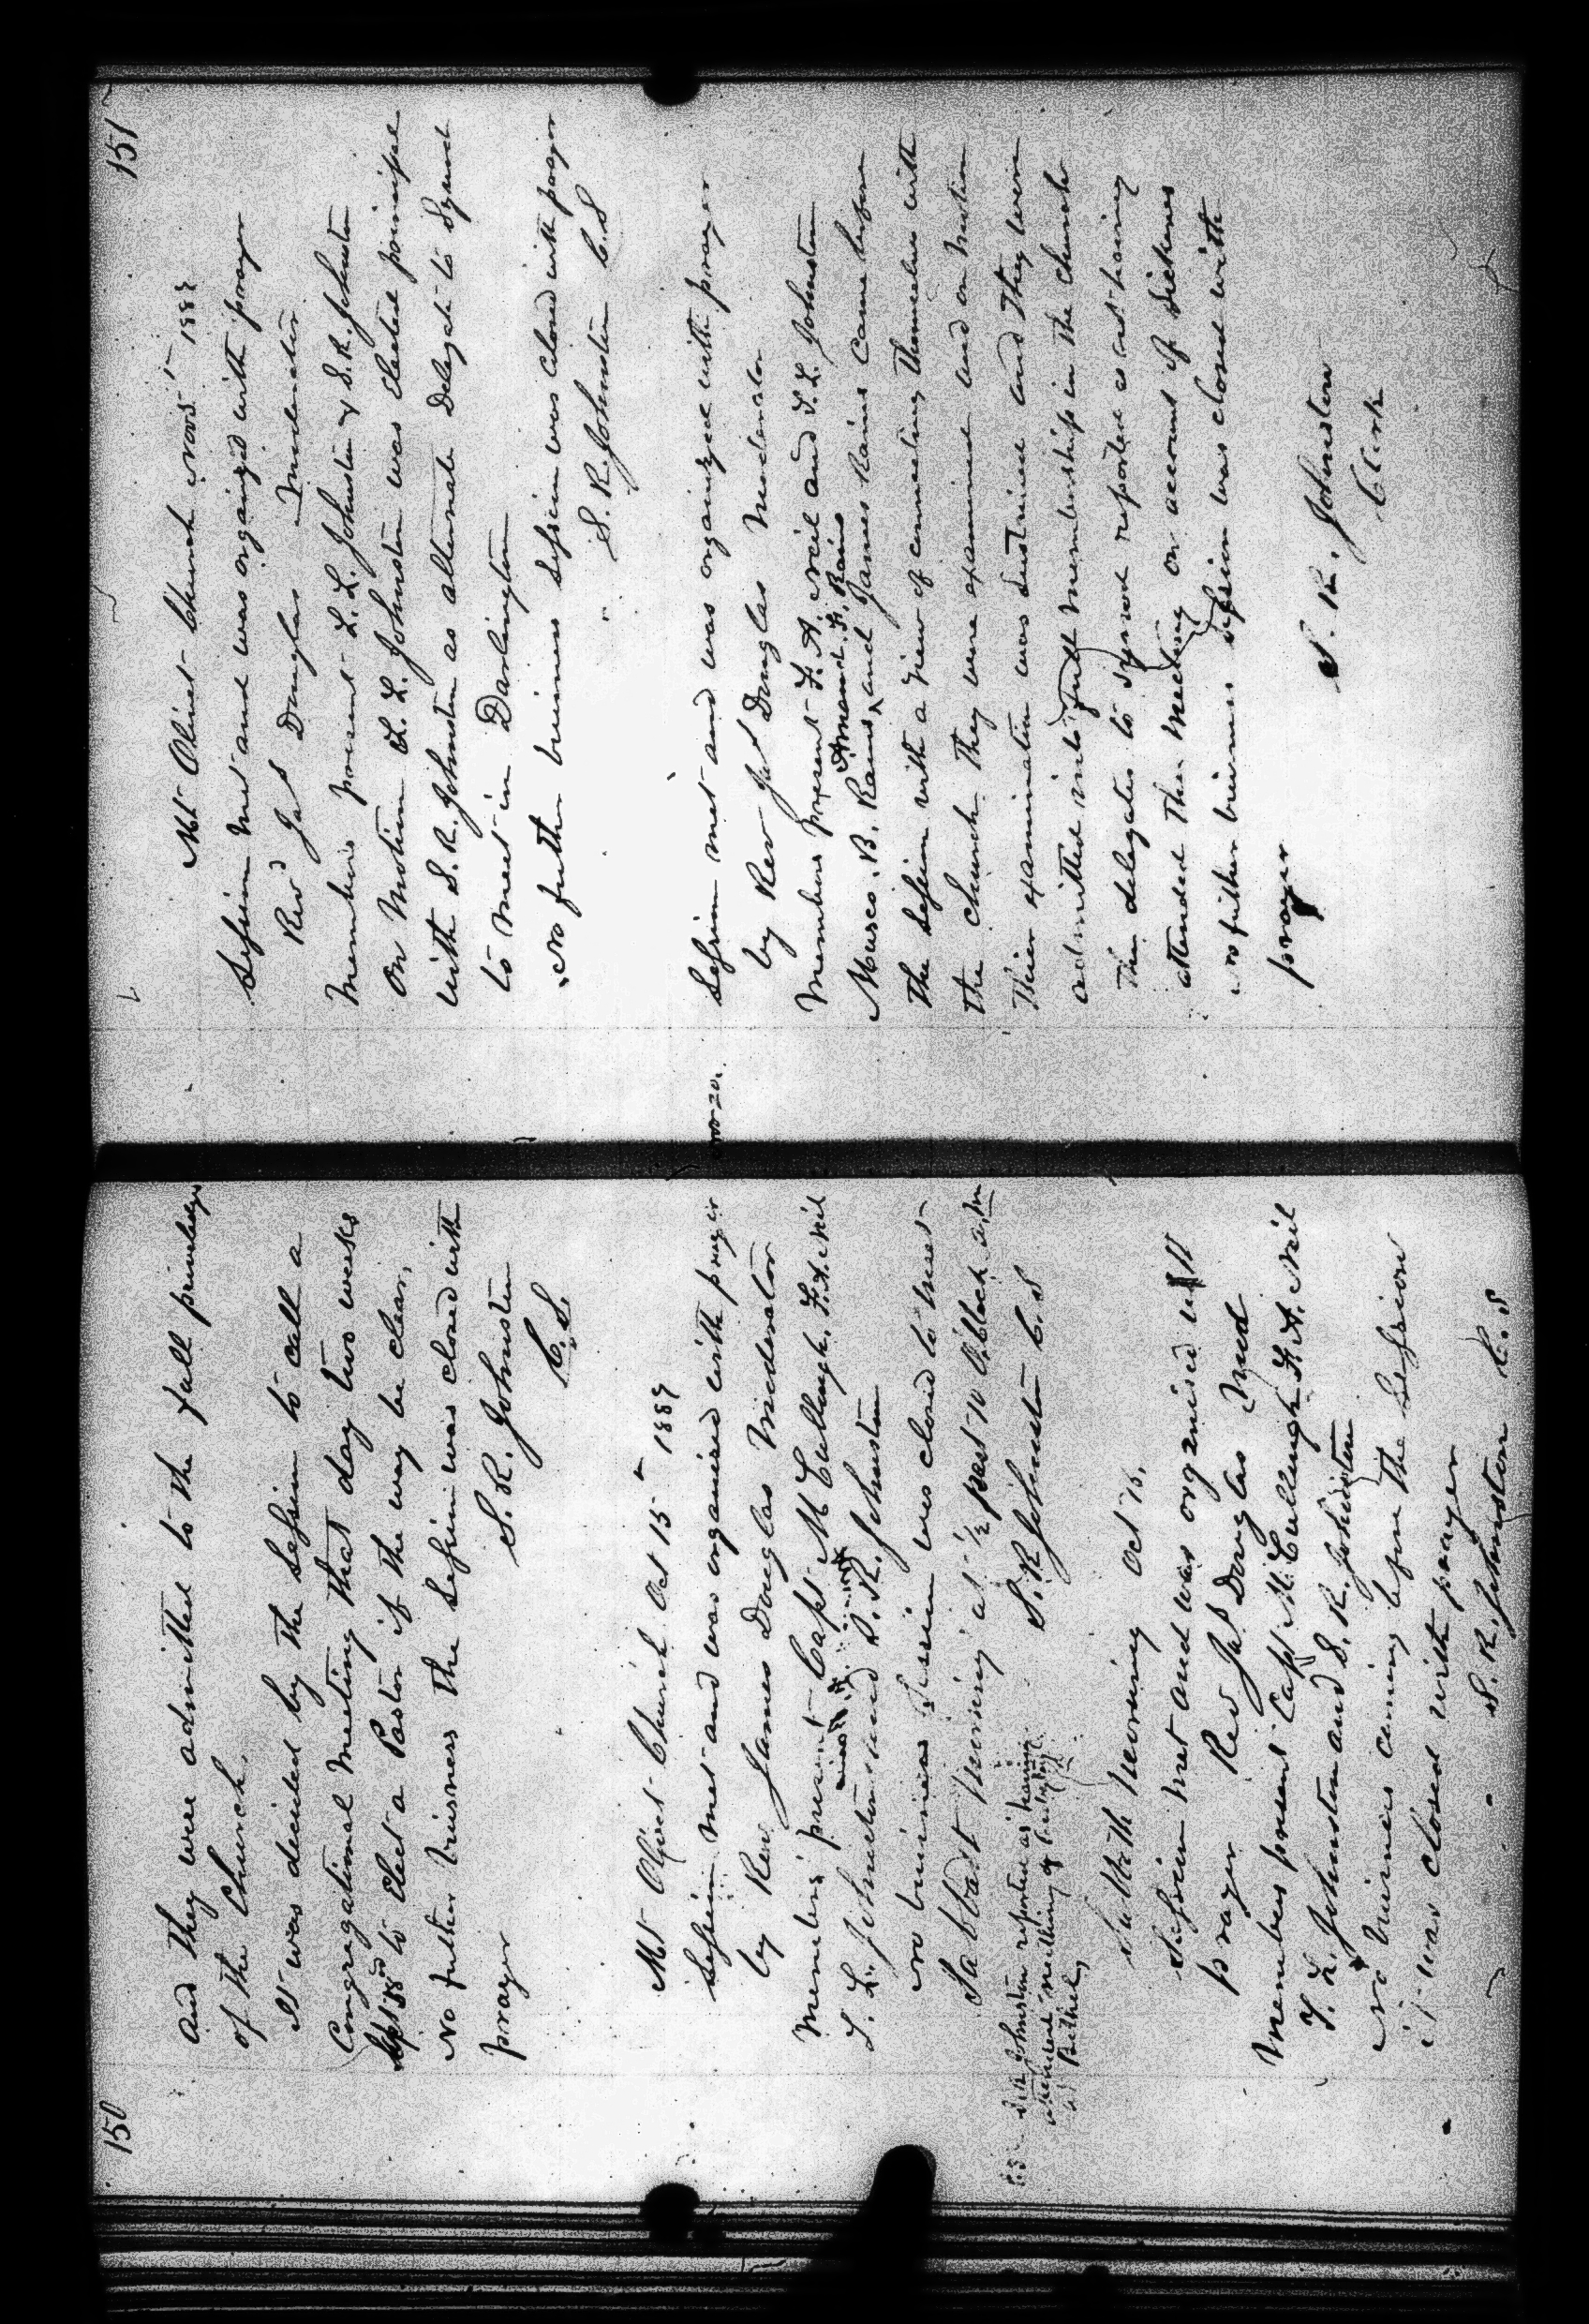 150
and they were admitted to the full priveledges
of the Church.
It was decided by the Session to call a
Congregational Meeting that day two weeks
to Elect a Pastor if the way be clear,
No futher business the Session was closed with
prayer
S. R. Johnston
C. S.
Mt Olivet Church Oct 15 1887
Session met and was organised with prayer
by Rev James Douglas Moderator
Members present Capt McCullough, F. A. Neil
T. L. Johnston and S. R. Johnston
No business Session was closed to meet
Sabbath Morning at ½ past 10 Oclock a.m
S. R. Johnston C. S
S R Johnston reported as having
attended meeting of
at Bethel,
Sabbath Morning Oct 16,
Session met and was organised with
prayer Rev Jas Douglas Mod
Members present Capt McCullough F. A. Neil
T. L. Johnston and S. R. Johnston
No business coming before the Session
it was closed with prayer
S. R. Johnston C. S
151
Mt Olivet Church Nov 5 1887
Session met and was organized with prayer
Revd Jas Douglas Moderator
Members present L. L. Johnston & S. R. Johnston
On Motion L. L. Johnston was Elected principal
with S. R. Johnston as alternate Delegate to Synod
to meet in Darlington
No futher business Session was closed with prayer
S. R. Johnston C. S
Nov 20.
Session met and was organized with prayer
by Rev Jas Douglas Moderator
Members present F. A. Neil and T. L. Johnston
Amand. F. Rains
B. Rains ^ and James Rains Came before
the Session with a view of connecting themselves with
the Church They were examined and on Motion
Thier examination was sustained and They were
admitted into full membership in the Church
The delegates to Synod reported as not having
attended the Meeting on account of Sickness
No futher business Session was closed with
prayer
S. R. Johnston
Clerk